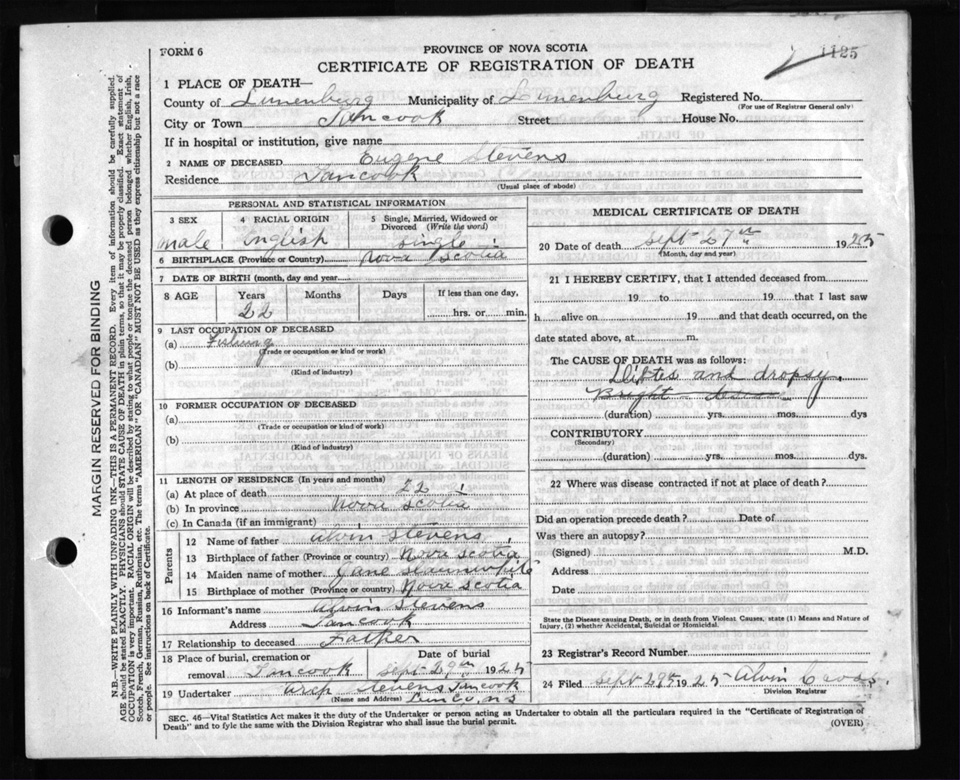 FORM 6
PROVINCE OF NOVA SCOTIA
1125
CERTIFICATE OF REGISTRATION OF DEATH
1 PLACE OF DEATH—
County of Lunenburg Municipality of Lunenburg Registered No.
(For use of Registrar General only)
City or Town Tancook Street House No.
If in hospital or institution, give name
2 NAME OF DECEASED Eugene Stevens
Residence Tancook
(Usual place of abode)
PERSONAL AND STATISTICAL INFORMATION
3 SEX 4 RACIAL ORIGIN 5 Single, Married, Widowed or Divorced (Write the word)
Male English Single
6 BIRTHPLACE (Province or Country) Nova Scotia
7 DATE OF BIRTH (month, day and year)
8 AGE Years Months Days If less than one day,
22 hrs. or min.
9 LAST OCCUPATION OF DECEASED
(a) Fishing
(Trade or occupation or kind or work)
(b)
(Kind of industry)
10 FORMER OCCUPATION OF DECEASED
(a)
(Trade or occupation or kind of work)
(b)
(Kind of industry)
11 LENGTH OF RESIDENCE (In years and months)
(a) At place of death 22
(b) In province Nova Scotia
(c) In Canada (if an immigrant)
Parents
12 Name of father Alvin Stevens
13 Birthplace of father (Province or country) Nova Scotia
14 Maiden name of mother Jane
15 Birthplace of mother (Province or country) Nova Scotia
16 Informant's name Alvin Stevens
Address Tancook
17 Relationship to deceased Father
18 Place of burial, cremation or removal Tancook Date of burial Sept 29th 1925
19 Undertaker Stevens Tancook
(Name and Address) Lun Co, N S
MEDICAL CERTIFICATE OF DEATH
20 Date of death Sept 27th 1925
(Month, day and year)
21 I HEREBY CERTIFY, that I attended deceased from
19 to 19 that I last saw
h alive on 19 and that death occurred, on the
date stated above, at m.
The CAUSE OF DEATH was as follows:
and dropsy.
Bright
(duration) yrs. mos. dys
CONTRIBUTORY
(Secondary)
(duration) yrs. mos. dys.
22 Where was disease contracted if not at place of death?
Did an operation precede death? Date of
Was there an autopsy?
(Signed) M.D.
Address
Date
State the Disease causing Death, or in death from Violent Causes, state (1) Means and Nature of
Injury, (2) whether Accidental, Suicidal or Homicidal.
23 Registrar's Record Number
24 Filed Sept 29th 1925 Alvin Cross.
Division Registrar
SEC. 46—Vital Statistics Act makes it the duty of the Undertaker or person acting as Undertaker to obtain all the particulars required in the "Certificate of Registration of
Death" and to fyle the same with the Division Registrar who shall issue the burial permit.
(OVER)
MARGIN RESERVED FOR BINDING
N.B.—WRITE PLAINLY WITH UNFADING INK—THIS IS A PERMANENT RECORD. Every item of information should be carefully supplied.
AGE should be stated EXACTLY. PHYSICIANS should STATE CAUSE OF DEATH in plain terms, so that it may be properly classified. Exact statement of
OCCUPATION is very important. RACIAL ORIGIN will be described by stating to what people or tongue the deceased person belonged whether English, Irish,
Scotch, French, German, Russian, Ruthenian, etc. The terms "AMERICAN" OR "CANADIAN" MUST NOT BE USED as they express citizenship but not a race
or people. See instructions on back of Certificate.